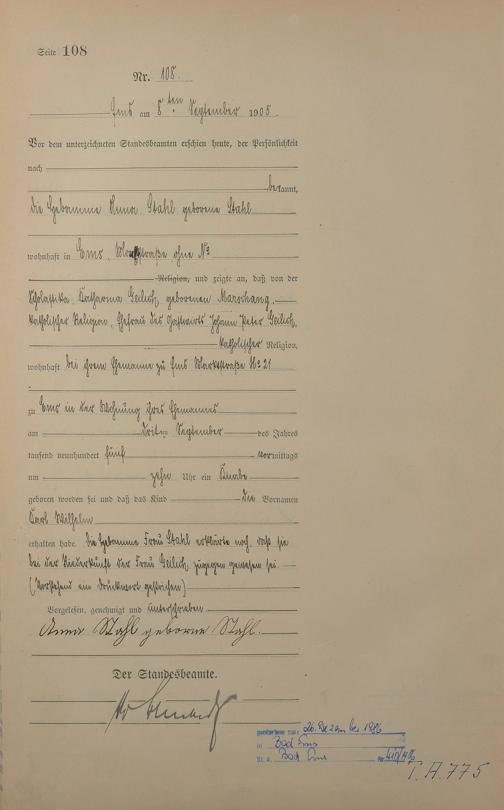 Seite 108
Nr. 108.
Ems am 5ten September 1905
Vor dem unterzeichneten Standesbeamten erschien heute, der Persönlichkeit
nach
bekannt,
die Hebamme Anna Stahl geborene Stahl
wohnhaft in Ems, straße ohne No
Religion, und zeigte an, daß von der
Scholastika Katharina Geilich, geborenen Marschang,
katholischer Religion, Ehefrau des Gastwirts Johann Peter Geilich,
katholischer Religion,
wohnhaft bei ihrem Ehemanne zu Ems Marktstraße No 21
zu Ems in der Wohnung ihres Ehemannes
am dritten September des Jahres
tausend neunhundert fünf vormittags
um zehn Uhr ein Knabe
geboren worden sei und daß das Kind die Vornamen
Karl Wilhelm
erhalten habe. Die Hebamme Frau Stahl erklärte noch, daß sie
bei der Niederkunft der Frau Geilich zugegen gewesen sei.
(Vorstehend ein Druckwort gestrichen)
Vorgelesen, genehmigt und unterschrieben
Anna Stahl geborne Stahl.
Der Standesbeamte.
gestorben am: 26. Dezember 1986
in Bad Ems
St. A. Bad Ems Nr.
T. A. 775